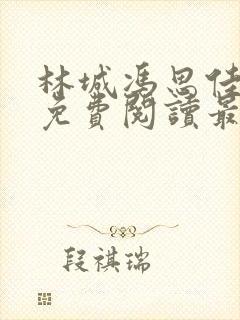 林城馮思佳
免費閱讀最
段祺瑞